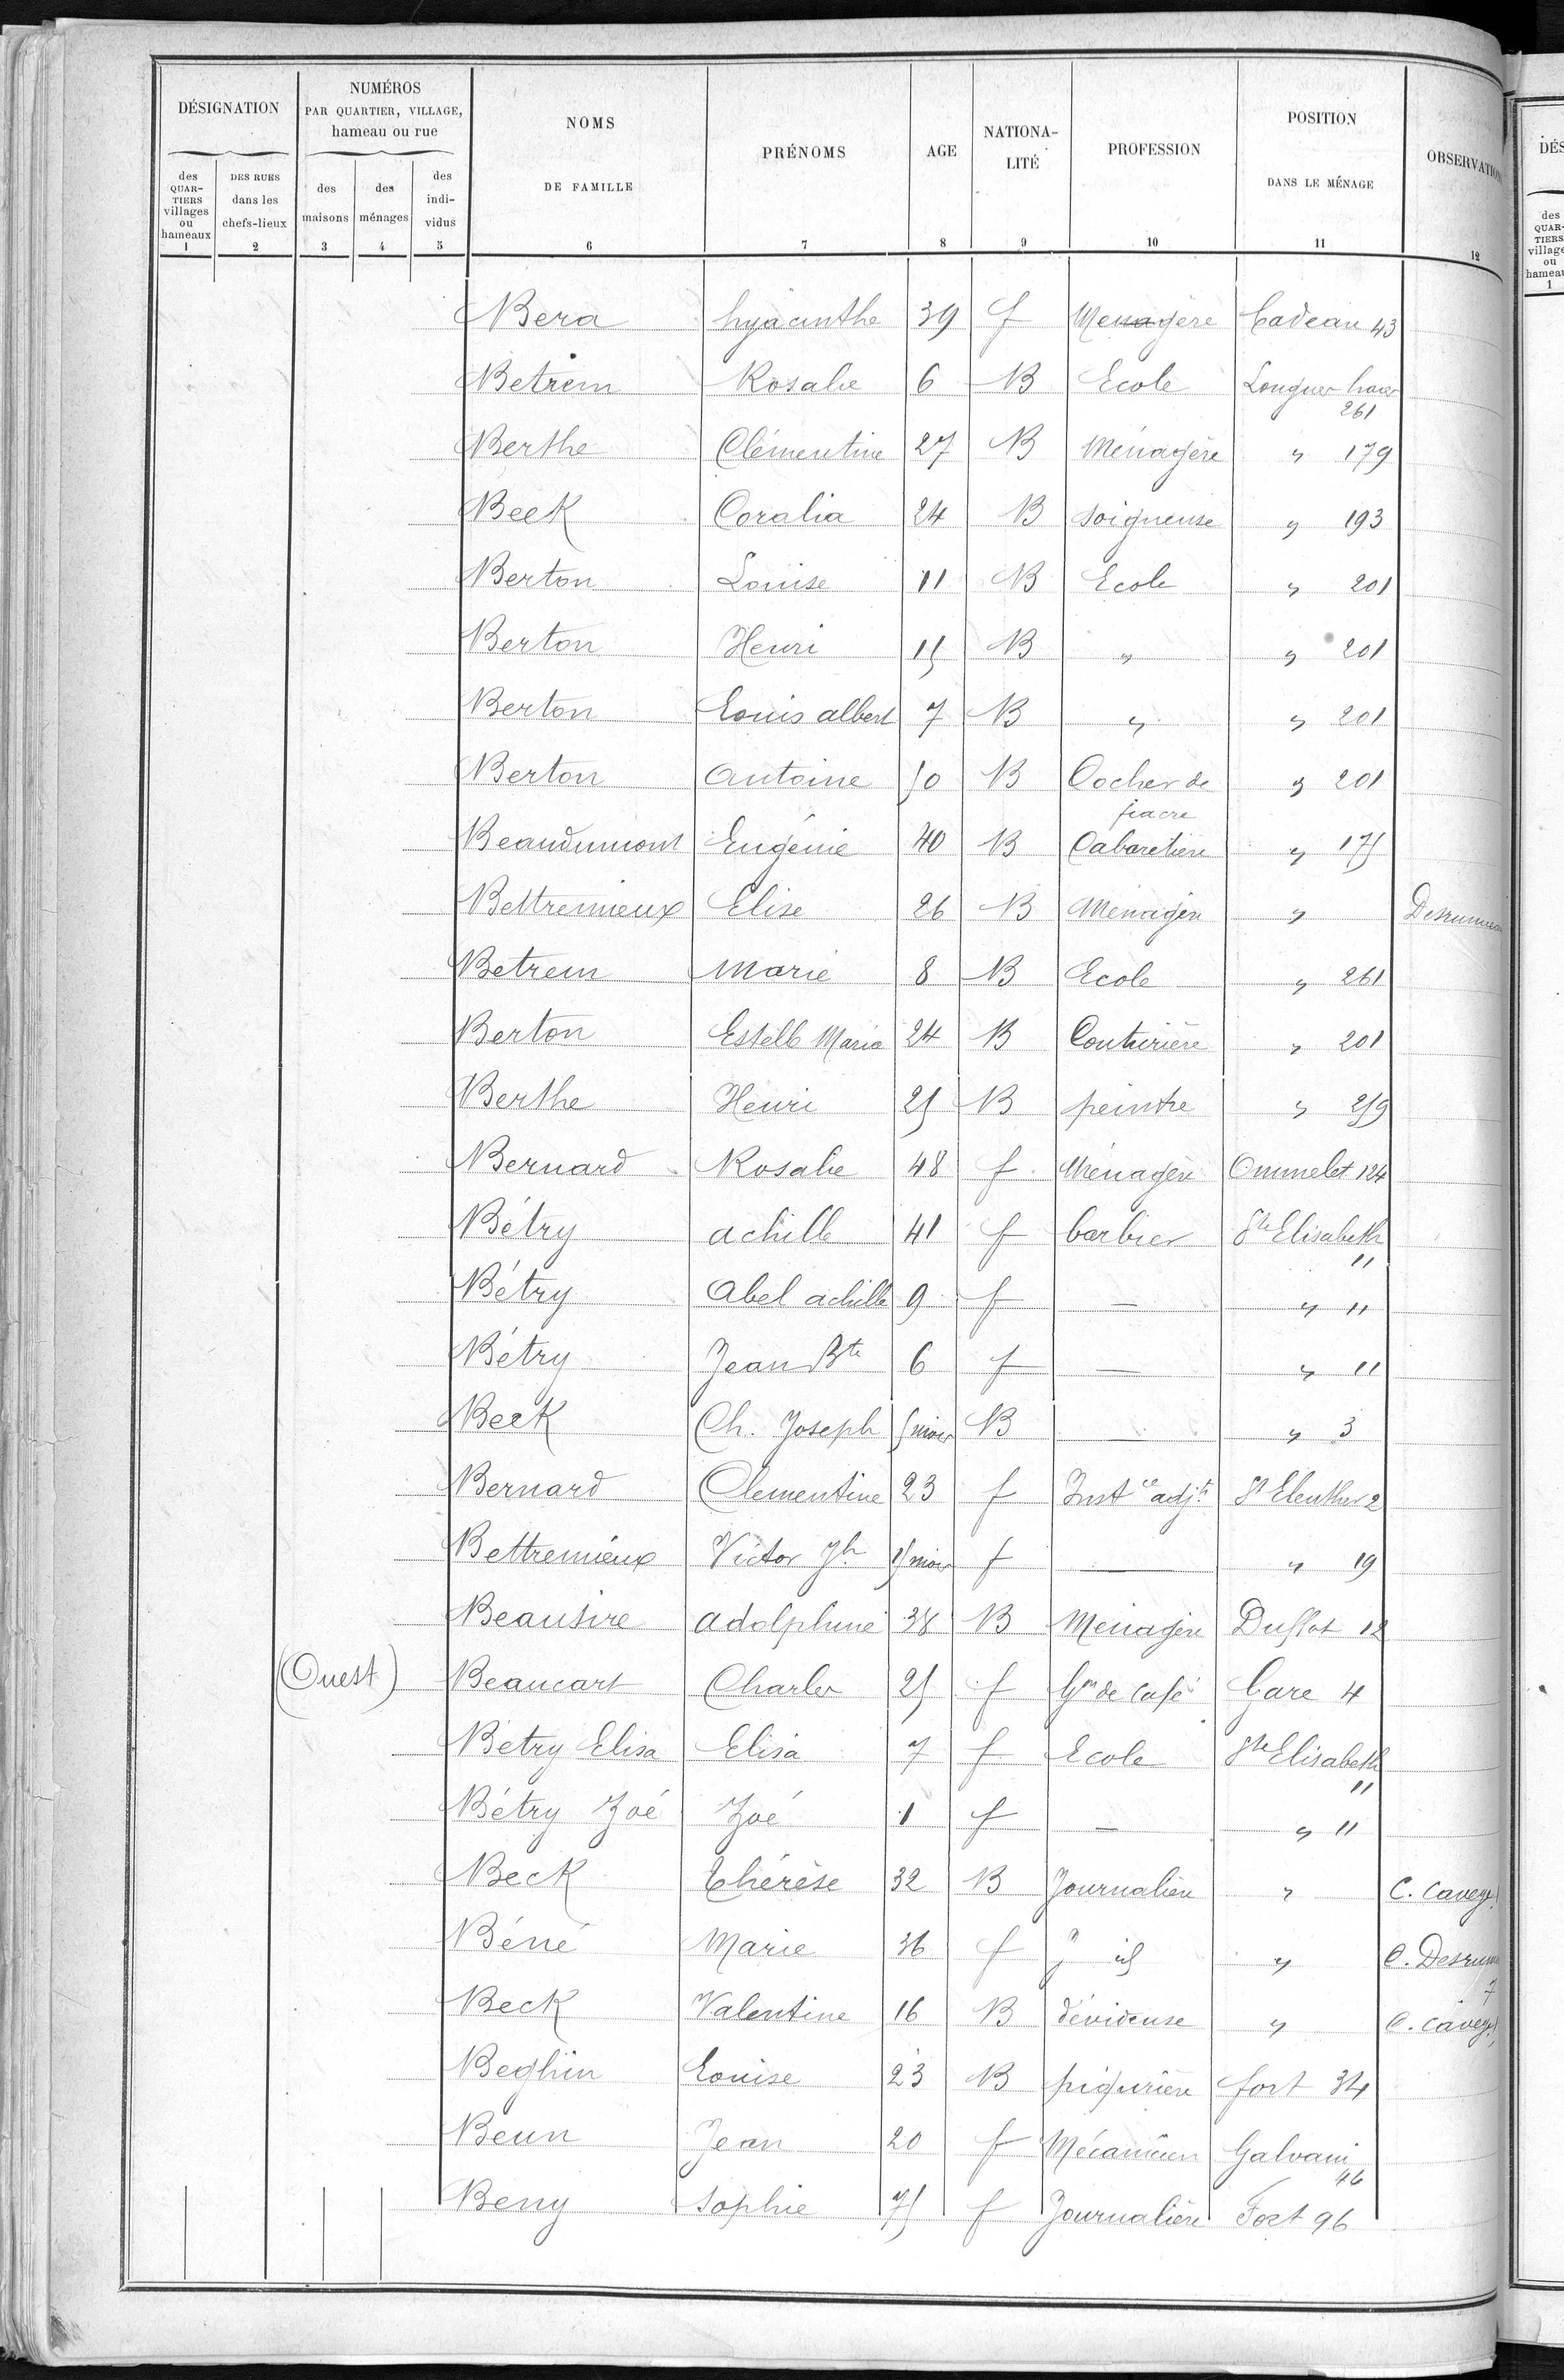 DÉSIGNATION NUMÉROS PAR QUARTIER, VILLAGE, hameau ou rue NOMS DE FAMILLE PRÉNOMS AGE NATIONA- LITÉ PROFESSION POSITION DANS LE MÉNAGE OBSERVATION
des QUAR- TIERS villages ou hameaux DES RUES dans les chefs-lieux des maisons des ménages des indi- vidus
1 2 3 4 5 6 7 8 9 10 11 12
Bera hyacinthe 39 f Menagère Cadeau 43
Betrem Rosalie 6 B Ecole Longues haies 261
Berthe Clémentine 27 B Ménagère " 179
Beek Coralia 24 B Soigneuse " 193
Berton Louise 11 B Ecole " 201
Berton Henri 15 B " " 201
Berton Louis albert 7 B " " 201
Berton Antoine 50 B Cocher de fiacre " 201
Beaudumont Eugénie 40 B Cabaretière " 175
Bettremieux Elise 26 B Ménagère "
Betrem Marie 8 B Ecole " 261
Berton Estelle Maria 24 B Couturière " 201
Berthe Henri 25 B peintre " 259
Bernard Rosalie 48 f Ménagère Ommelet 124
Bétry achille 41 f barbier Ste Elisabeth 11
Bétry Abel achille 9 f — " 11
Bétry Jean Bte 6 f — " 11
Beek Ch. Joseph 5 mois B — " 3
Bernard Clementine 23 f Instce adjte St Eleuther 2
Bettremieux Victor Jh 15 mois f — " 19
Beausire adolphine 38 B Ménagère Duflot 12
(Ouest) Beaucart Charles 25 f Gon de Café Gare 4
Bétry Elisa Elisa 7 f Ecole Ste Elisabeth 11
Bétry Zoé Zoé 1 f — " 11
Beck Thérèse 32 B Journalière " C. Cavey
Béné Marie 36 f "
7
Beck Valentine 16 B dévideuse " C. Cavey
Beghin Louise 23 B piqurière fort 34
Beun Jean 20 f Mécanicien Galvani 46
Beny Sophie 75 f Journalière Fort 96
DÉS
des QUAR- TIERS village ou hameau
1